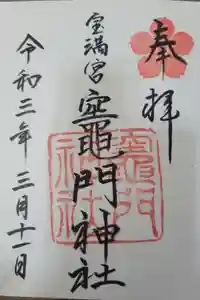 奉拝
宝満宮 竈門神社
竈門
神社
令和三年三月十一日